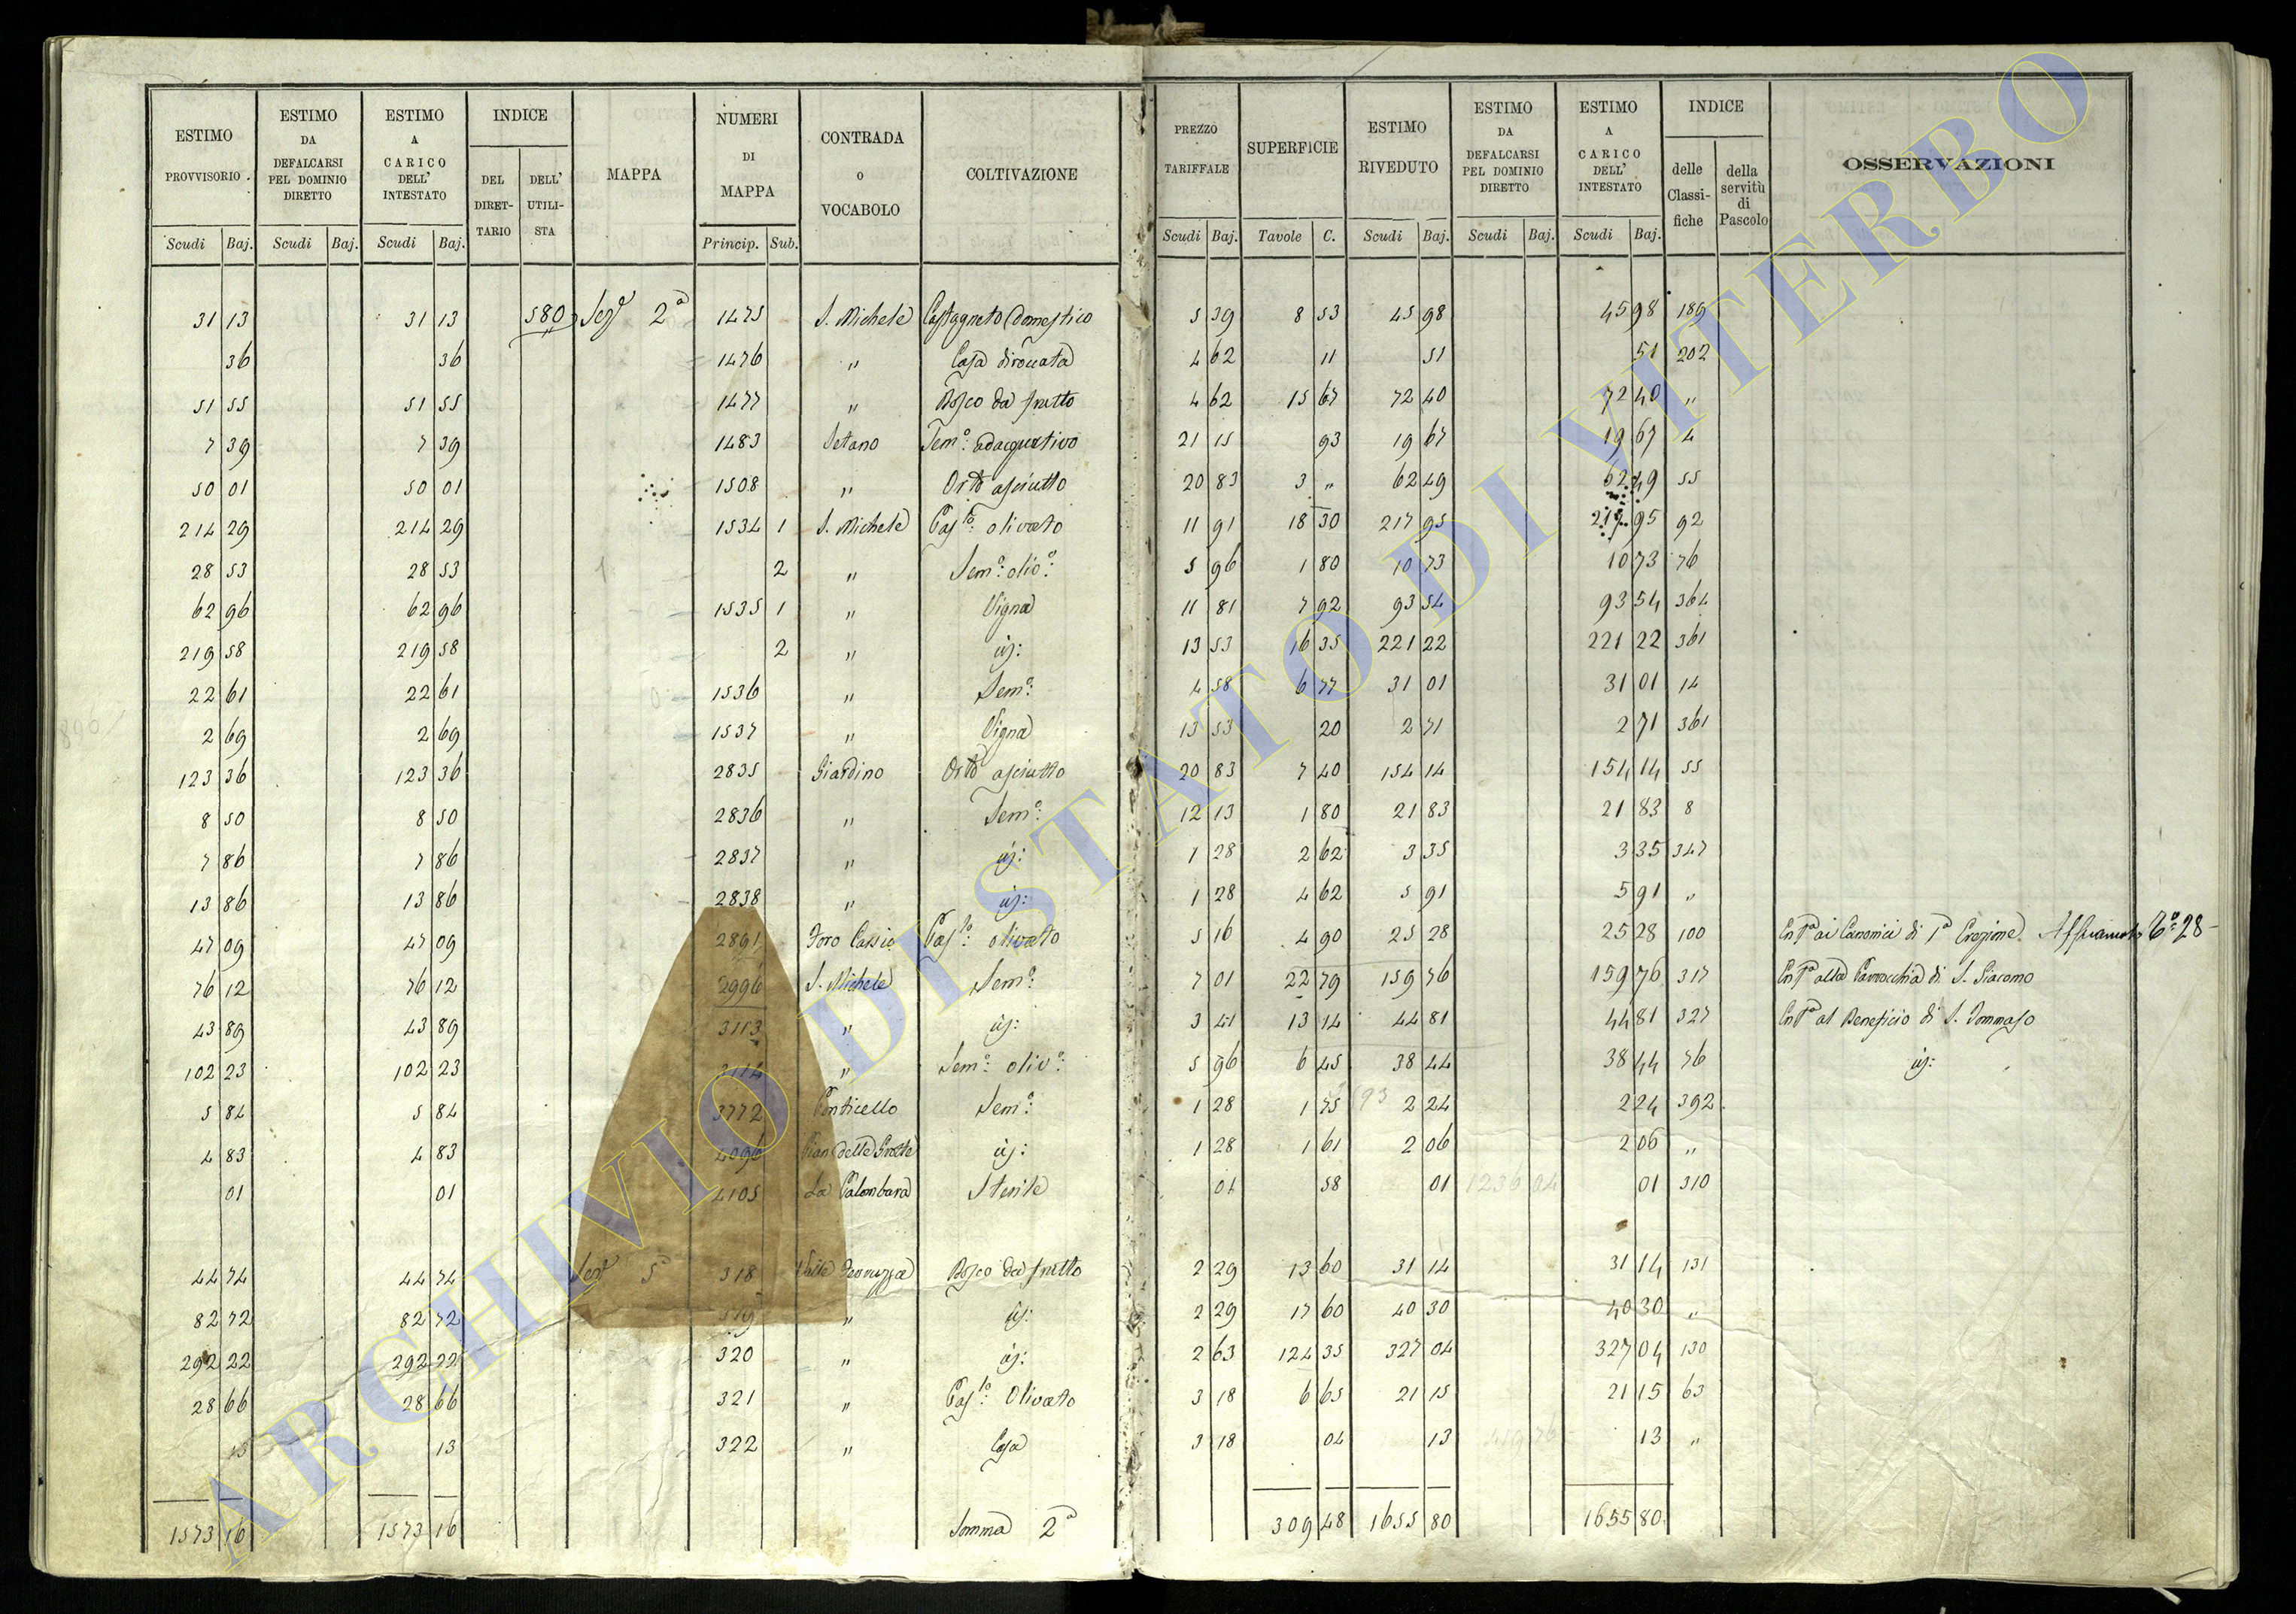 ESTIMO PROVVISORIO. | ESTIMO DA DEFALCARSI PEL DOMINIO DIRETTO | ESTIMO A CARICO DELL' INTESTATO | INDICE DEL DIRETTARIO | DELL' UTILISTA | MAPPA | NUMERI DI MAPPA | CONTRADA O VOCABOLO | COLTIVAZIONE | PREZZO TARIFFALE | SUPERFICIE | ESTIMO RIVEDUTO | ESTIMO DA DEFALCARSI PEL DOMINIO DIRETTO | ESTIMO A CARICO DELL' INTESTATO | INDICE delle Classifiche | della servitù di Pascolo | OSSERVAZIONI
Scudi Baj. | Scudi Baj. | Scudi Baj. | Princip. Sub. | Scudi Baj. | Tavole C. | Scudi Baj. | Scudi Baj. | Scudi Baj.
31 13 31 13 580 Sez.e 2a 1475 S. Michele Castagneto Domestico 5 39 8 53 45 98 45 98 189
36 36 1476 " Casa diroccata 4 62 11 51 51 202
51 55 51 55 1477 " Bosco da frutto 4 62 15 67 72 40 72 40 "
7 39 7 39 1483 Setano Sem.o adacquativo 21 15 93 19 67 19 67 4
50 01 50 01 1508 " Orto asciutto 20 83 3 " 62 49 62 49 55
214 29 214 29 1534 1 S. Michele Pas.to olivato 11 91 18 30 217 95 217 95 92
28 53 28 53 2 " Sem.o olio.o 5 96 1 80 10 73 10 73 76
62 96 62 96 1535 1 " Vigna 11 81 7 92 93 54 93 54 364
219 58 219 58 2 " id: 13 53 16 35 221 22 221 22 361
22 61 22 61 1536 " Sem.o 4 58 6 77 31 01 31 01 14
2 69 2 69 1537 " Vigna 13 53 20 2 71 2 71 361
123 36 123 36 2835 Giardino Orto asciutto 20 83 7 40 154 14 154 14 55
8 50 8 50 2836 " Sem.o 12 13 1 80 21 83 21 83 8
7 86 7 86 2837 " id: 1 28 2 62 3 35 3 35 347
13 86 13 86 2838 " id: 1 28 4 62 5 91 5 91 "
47 09 47 09 2891 Foro Cassio Pas.to olivato 5 16 4 90 25 28 25 28 100 Enf.a ai Canonici di 1a Erezione. 28
76 12 76 12 2996 S. Michele Sem.o 7 01 22 79 159 76 159 76 317 Enf.a alla Parrocchia di S. Giacomo
43 89 43 89 3113 " id: 3 41 13 14 44 81 44 81 327 Enf.a al Beneficio di S. Tommaso
102 23 102 23 3114 " Sem.o oliv.o 5 96 6 45 38 44 38 44 76 id:
5 84 5 84 3772 Ponticello Sem.o 1 28 1 75 2 24 2 24 392
4 83 4 83 4096 Pian delle Grotte id: 1 28 1 61 2 06 2 06 "
01 01 4105 La Palombara Sterile 01 58 01 01 310
44 74 44 74 Sez.e 5a 318 Valle Bosco da frutto 2 29 13 60 31 14 31 14 131
82 72 82 72 319 " id: 2 29 17 60 40 30 40 30 "
292 22 292 22 320 " id: 2 63 124 35 327 04 327 04 130
28 66 28 66 321 " Pas.to Olivato 3 18 6 65 21 15 21 15 63
13 13 322 " Casa 3 18 04 13 13 "
1573 16 1573 16 Somma 2a 309 48 1655 80 1655 80
ARCHIVIO DI STATO DI VITERBO